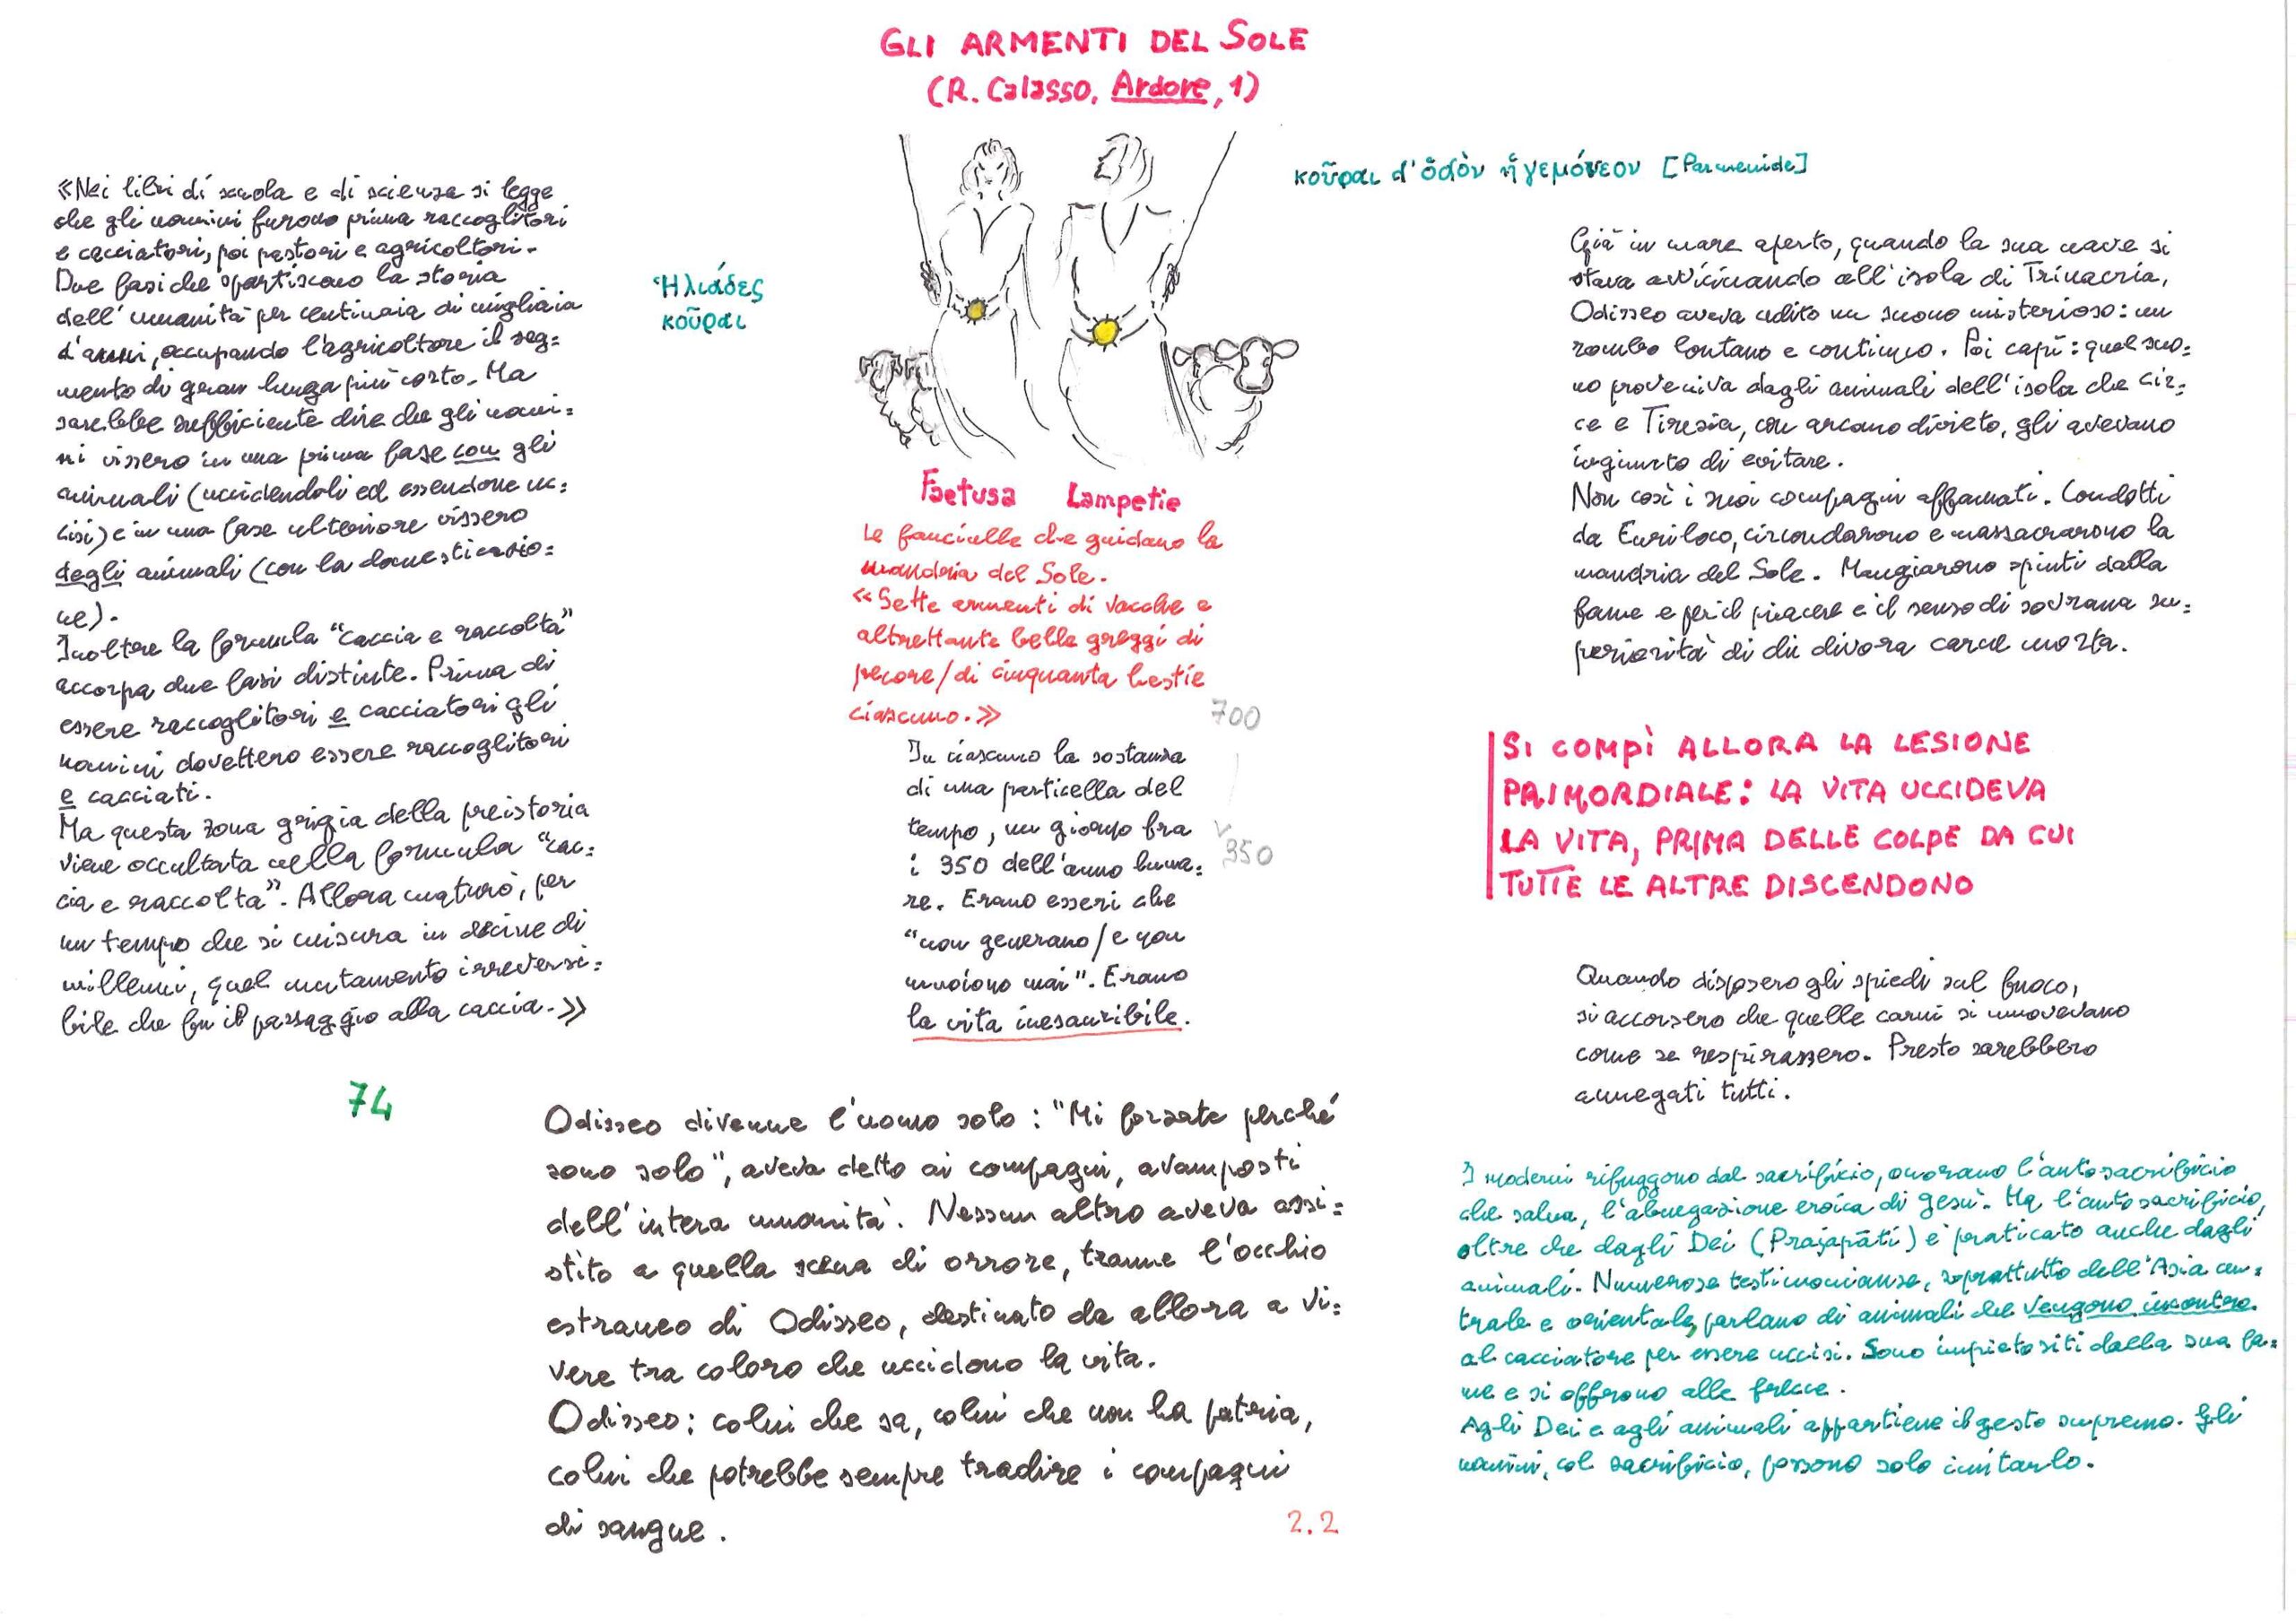 GLI ARMENTI DEL SOLE
(R. Calasso, Ardore, 1)
«Nei libri di scuola e di scienza si legge
che gli uomini furono prima raccoglitori
e cacciatori, poi pastori e agricoltori.
Due fasi che spartiscono la storia
dell'umanità per centinaia di migliaia
d'anni, occupando l'agricoltore il seg=
mento di gran lunga più corto. Ma
sarebbe sufficiente dire che gli uomi=
ni vissero in una prima fase con gli
animali (uccidendoli ed essendone uc=
cisi) e in una fase ulteriore vissero
degli animali (con la domesticazio=
ne).
Inoltre la formula "caccia e raccolta"
accorpa due fasi distinte. Prima di
essere raccoglitori e cacciatori gli
uomini dovettero essere raccoglitori
e cacciati.
Ma questa zona grigia della preistoria
viene occultata nella formula "cac=
cia e raccolta". Allora maturò, per
un tempo che si misura in decine di
millenni, quel mutamento irreversi=
bile che fu il passaggio alla caccia.»
74
Ἡλιάδες
κοῦραι
κοῦραι δ' ὁδὸν ἡγεμόνευον [Parmenide]
Faetusa Lampetie
Le fanciulle che guidano la
mandria del Sole.
«Sette armenti di vacche e
altrettante belle greggi di
pecore/di cinquanta bestie
ciascuno.»
700
In ciascuno la sostanza
di una particella del
tempo, un giorno fra
i 350 dell'anno luna=
350
re. Erano esseri che
"non generano/e non
muoiono mai". Erano
la vita inesauribile.
Odisseo divenne l'uomo solo: "Mi forzate perché
sono solo", aveva detto ai compagni, avamposti
dell'intera umanità. Nessun altro aveva assi=
stito a quella scena di orrore, tranne l'occhio
estraneo di Odisseo, destinato da allora a vi=
vere tra coloro che uccidono la vita.
Odisseo: colui che sa, colui che non ha patria,
colui che potrebbe sempre tradire i compagni
di sangue.
2.2
Già in mare aperto, quando la sua nave si
stava avvicinando all'isola di Trinacria,
Odisseo aveva udito un suono misterioso: un
rombo lontano e continuo. Poi capì: quel suo=
no proveniva dagli animali dell'isola che Cir=
ce e Tiresia, con arcano divieto, gli avevano
ingiunto di evitare.
Non così i suoi compagni affamati. Condotti
da Euriloco, circondarono e massacrarono la
mandria del Sole. Mangiarono spinti dalla
fame e per il piacere e il senso di sovrana su=
periorità di chi divora carne morta.
SI COMPÌ ALLORA LA LESIONE
PRIMORDIALE: LA VITA UCCIDEVA
LA VITA, PRIMA DELLE COLPE DA CUI
TUTTE LE ALTRE DISCENDONO
Quando disposero gli spiedi sul fuoco,
si accorsero che quelle carni si muovevano
come se respirassero. Presto sarebbero
annegati tutti.
I moderni rifuggono dal sacrificio, onorano l'autosacrificio
che salva, l'abnegazione eroica di Gesù. Ma l'autosacrificio,
oltre che dagli Dei (Prajāpati) è praticato anche dagli
animali. Numerose testimonianze, soprattutto dell'Asia cen=
trale e orientale, parlano di animali che vengono incontro
al cacciatore per essere uccisi. Sono impietositi dalla sua fa=
me e si offrono alle frecce.
Agli Dei e agli animali appartiene il gesto supremo. Gli
uomini, col sacrificio, possono solo imitarlo.